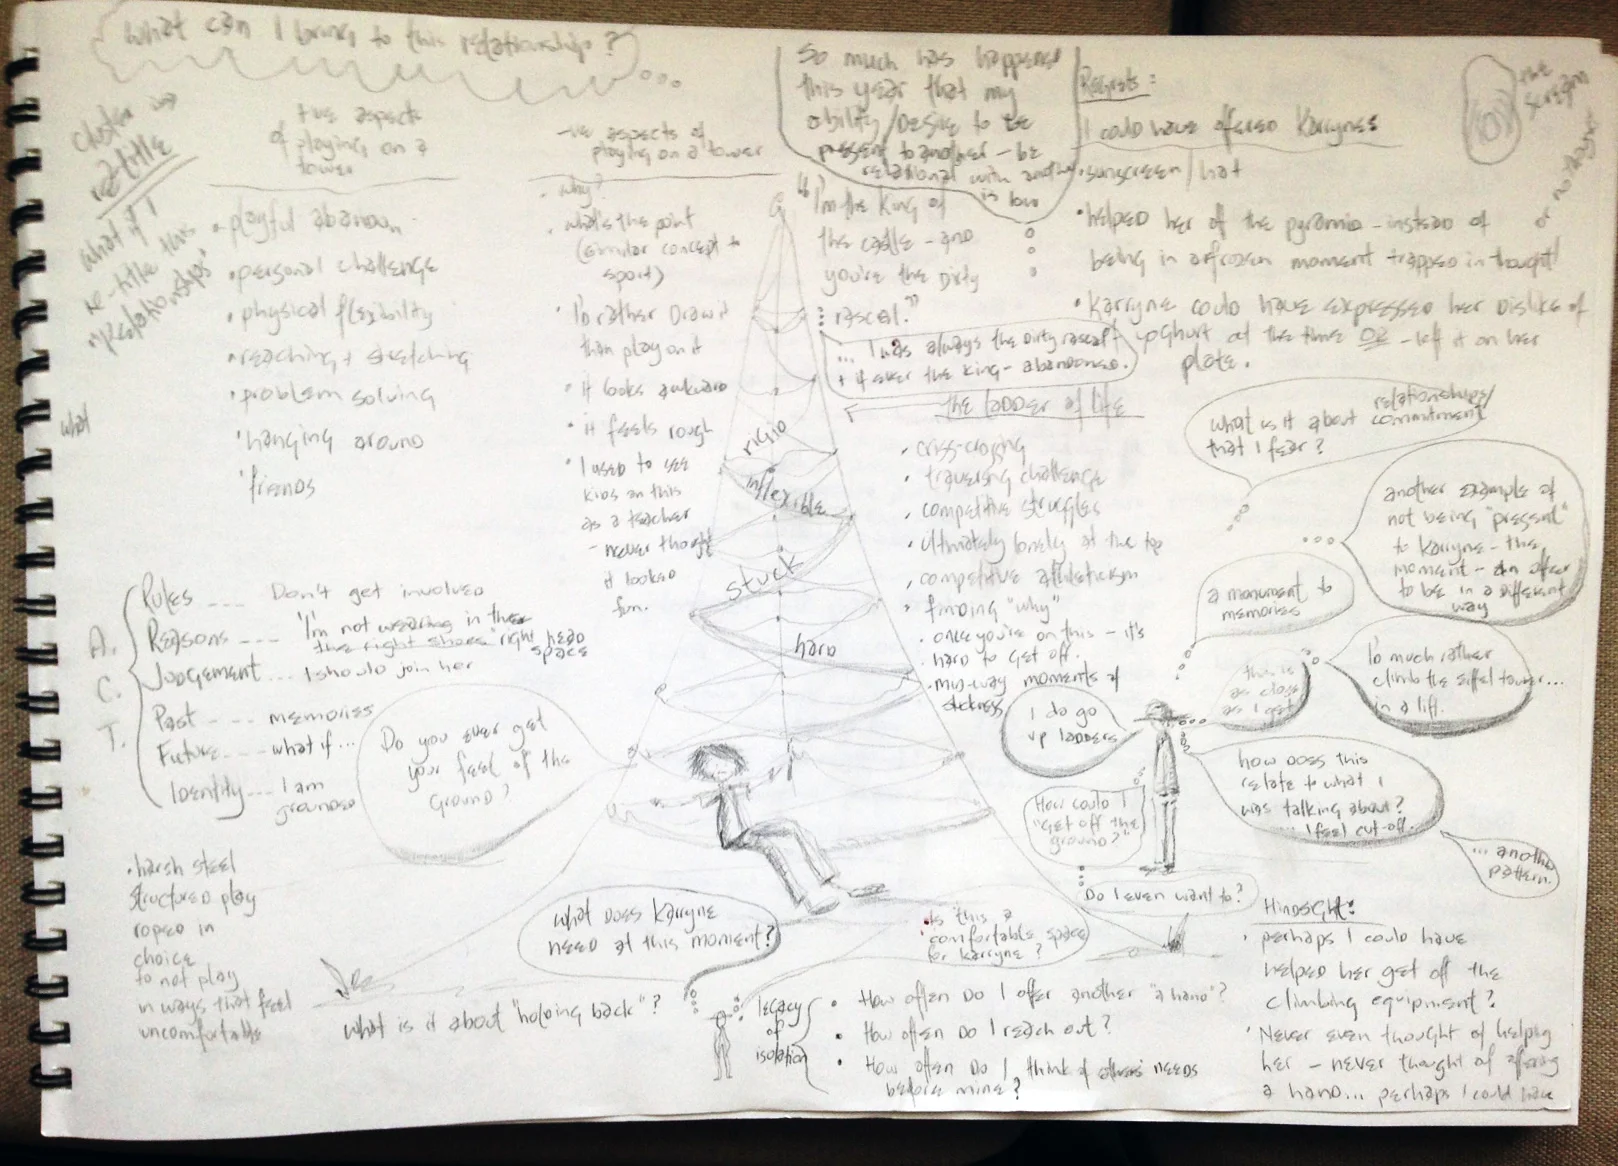 What can I bring to this relationship?
Cluster
re-title
What if I
re-title this
"Relationships"
what
+ve aspects
of playing on a
tower
• playful abandon
• personal challenge
• physical flexibility
• reaching + stretching
• problem solving
• hanging around
• friends
-ve aspects of
playing on a tower
• why?
what's the point
(similar concept to
sport)
• I'd rather draw it
than play on it
• it looks awkward
• it feels rough
• I used to see
kids on this
as a teacher
- never thought
it looked
fun.
So much has happened
this year that my
ability/desire to be
present to another - be
relational with another
is low
"I'm the King of
the castle - and
you're the Dirty
rascal."
... I was always the Dirty rascal
+ if ever the king - abandoned.
Regrets:
I could have offered Karryne
• sunscreen/hat
• helped her of the pyramid - instead of
being in a frozen moment trapped in thought
• Karryne could have expressed her dislike of
yoghurt at the time OR - left it on her
plate.
the scream
or no
the ladder of life
• criss-crossing
• traversing challenge
• competitive struggles
• ultimately lonely at the top
• competitive athleticism
• finding "why"
• once you're on this - it's
• hard to get off.
• mid-way moments of
rigid
inflexible
stuck
hard
What is it about relationships/
commitment
that I fear?
another example of
not being "present"
to Karryne - the
moment - an offer
to be in a different
way
a monument to
memories
this is
as close
as I get
I'd much rather
climb the Eiffel tower...
in a lift.
I do go
up ladders
how does this
relate to what I
was talking about?
... I feel cut-off.
... another
pattern.
How could I
"get off the
ground?"
Do I even want to?
A.
C.
T.
Rules --- Don't get involved
Reasons --- "I'm not wearing in the
the right shoes" right head
space
Judgement ... I should join her
Past --- memories
Future --- what if...
Identity --- I am
grounded
Do you ever get
your feet of the
ground?
• harsh steel
structured play
roped in
choice
to not play
in ways that feel
uncomfortable
What does Karryne
need at this moment?
Is this a
comfortable space
for Karryne?
What is it about "holding back"?
legacy
of
isolation
• How often do I offer another "a hand"?
• How often do I reach out?
• How often do I think of others needs
before mine?
Hindsight:
• perhaps I could have
helped her get off the
climbing equipment?
• Never even thought of helping
her - never thought of offering
a hand... perhaps I could have